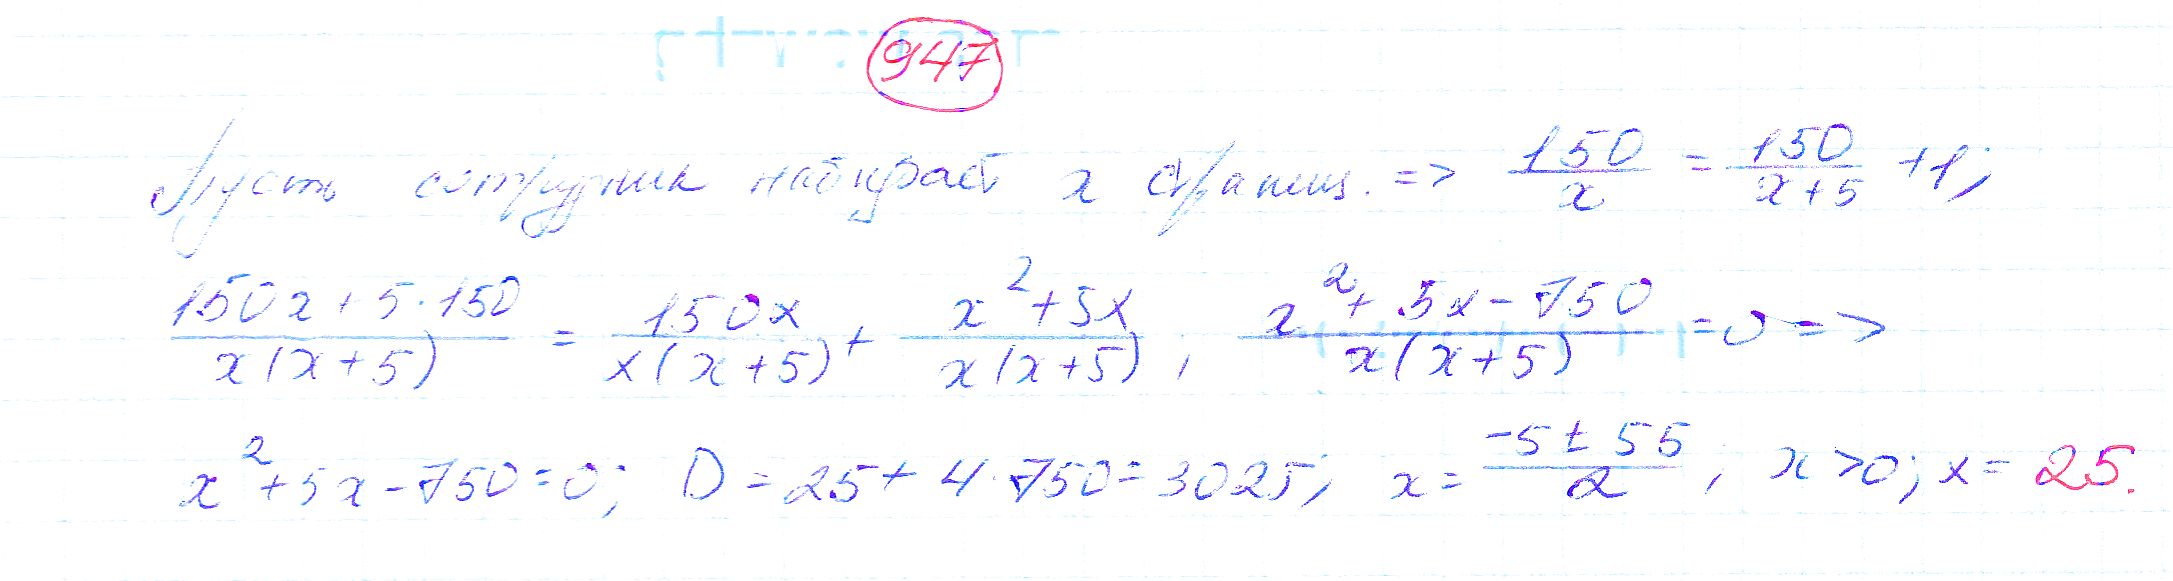 947
Пусть сотрудник набирает x страниц. => 150/x = 150/(x+5) + 1;
(150x + 5·150)/(x(x+5)) = 150x/(x(x+5)) + (x²+5x)/(x(x+5)); (x²+5x-750)/(x(x+5)) = 0 =>
x²+5x-750=0; D = 25+4·750=3025; x = (-5±55)/2; x>0; x = 25.